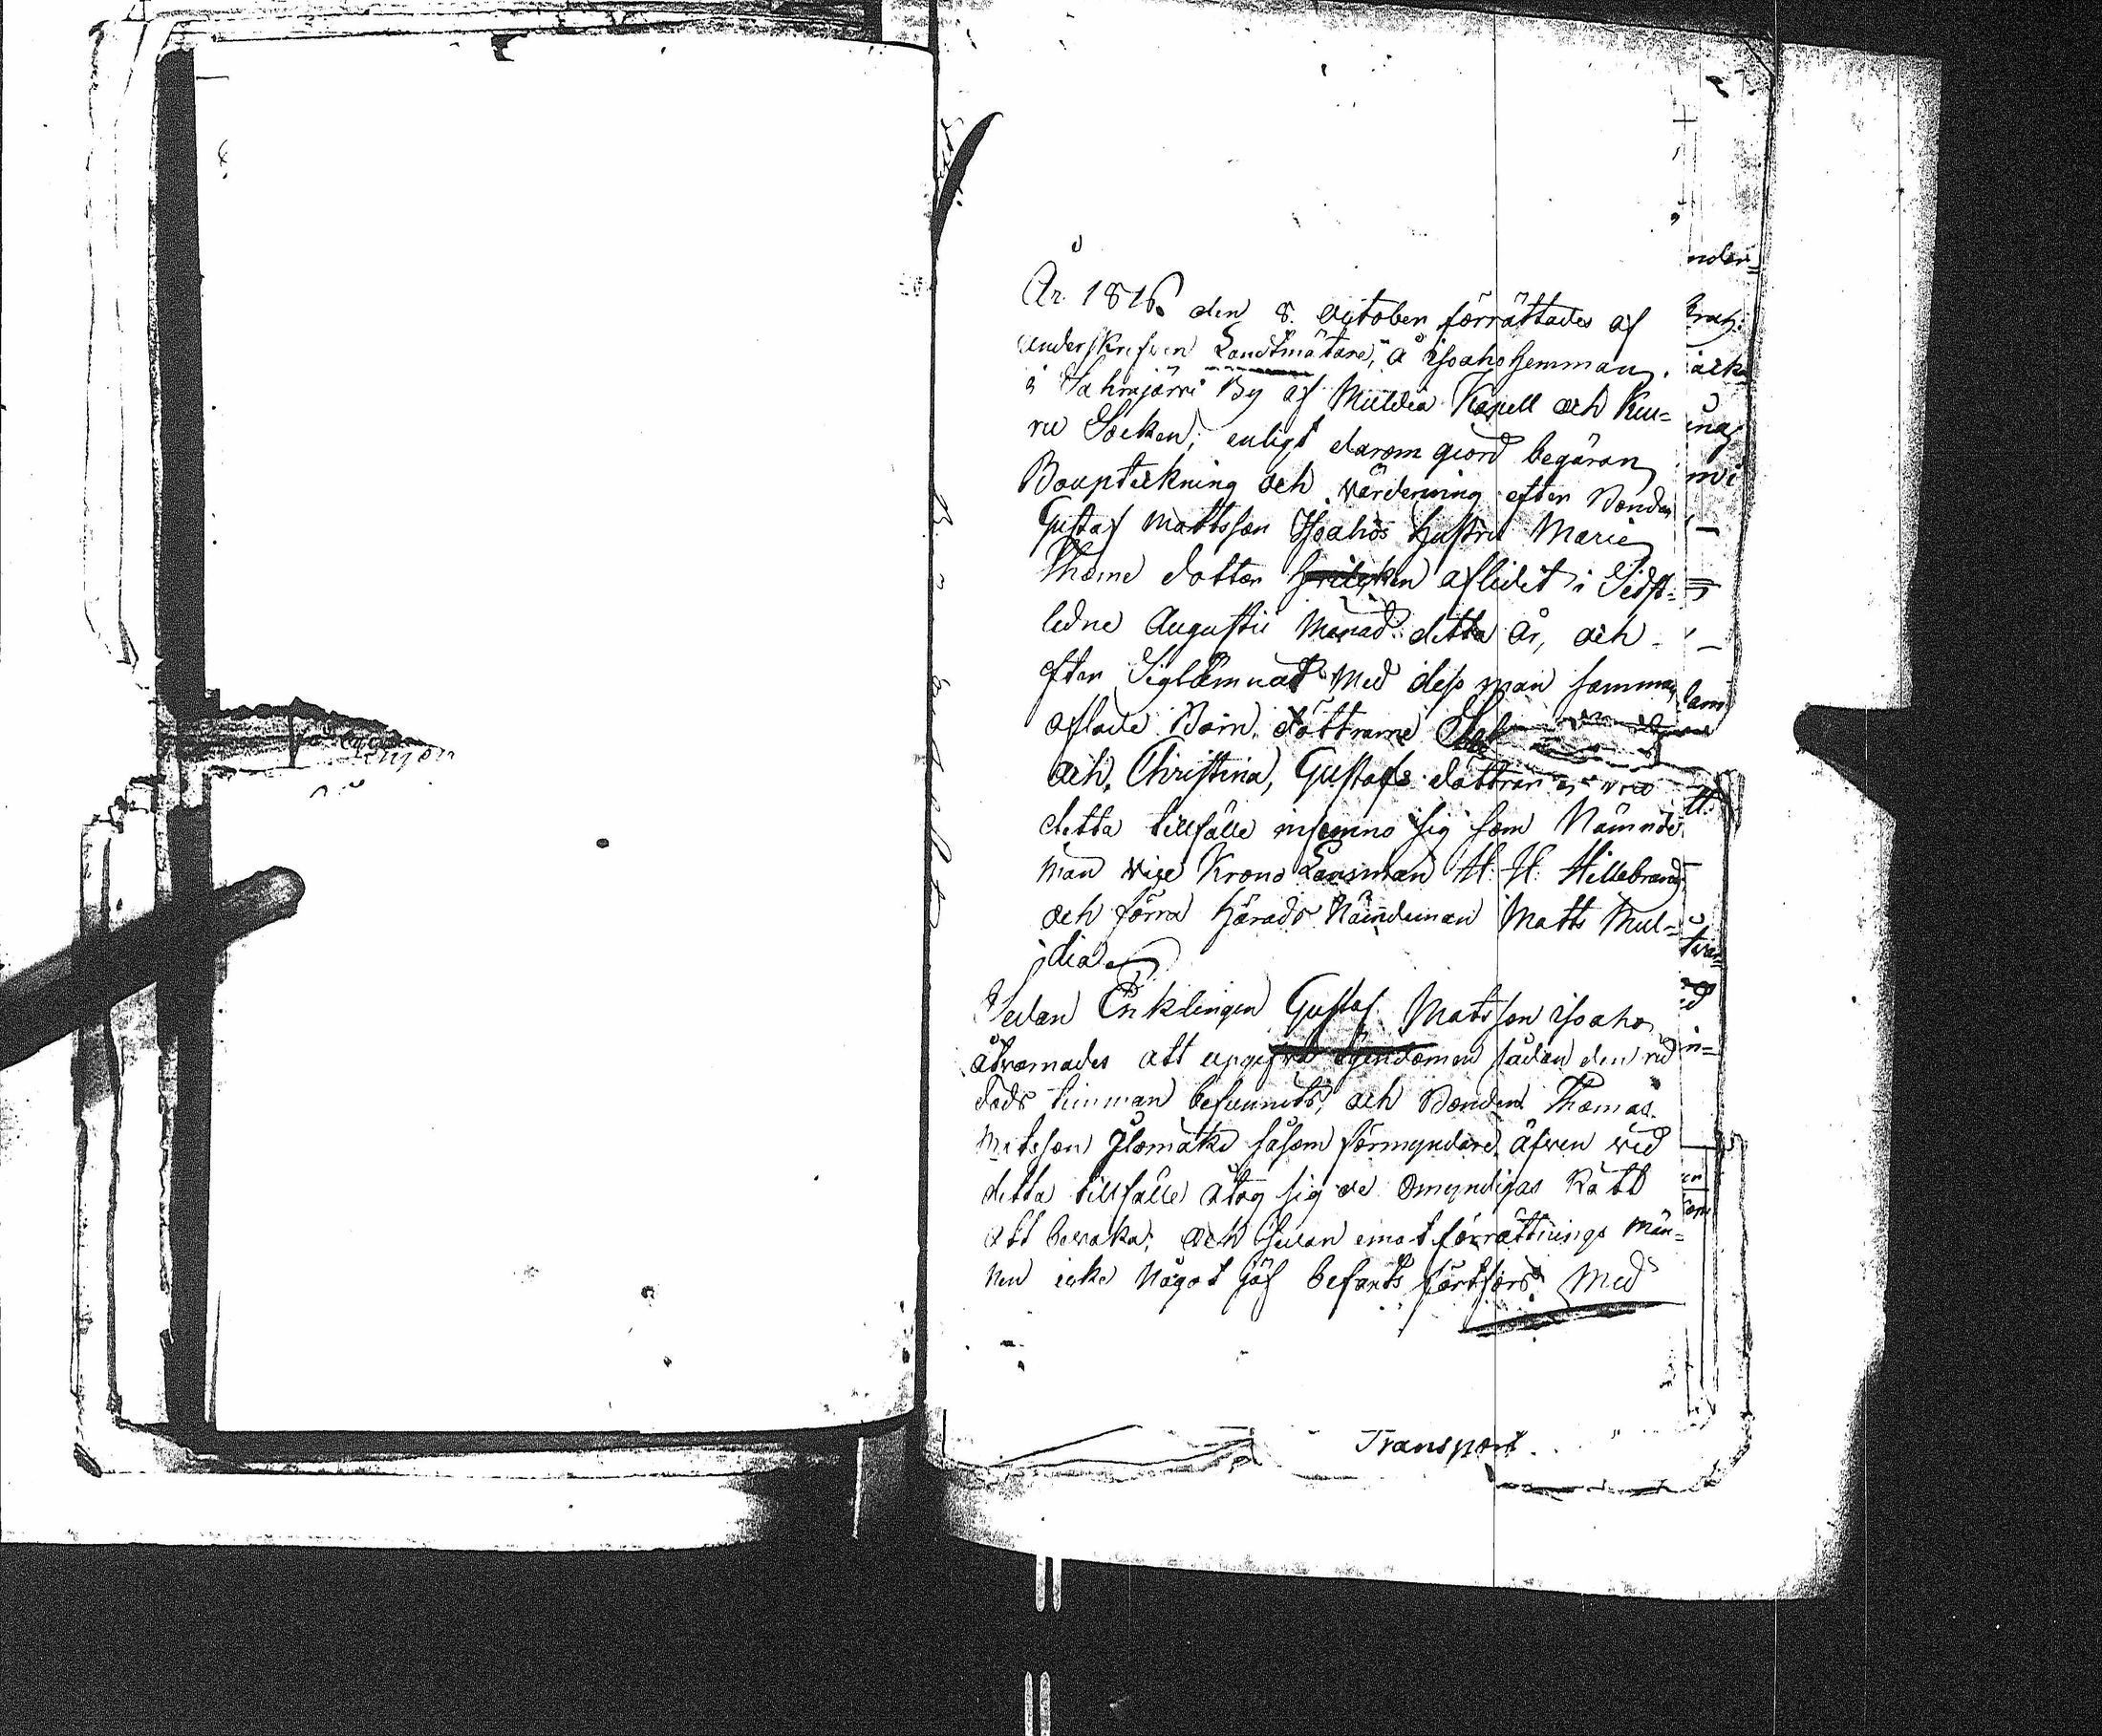 År 1816 den 8. October förrättades af
underskrefven Landtmätare, å Isoaho hemman
i Jahrajärvi By af Muldia Kapell och Keu=
ru Socken; enligt darom giord begäran
Boupteckning och värdering efter Bonden
Gustaf Mattsson Isoahos hustru Maria
Thome dotter aflidit i Sidst=
ledne Augustii Månad detta År, och
efter Sig lämnat med dess man samman
aflade Barn, döttrarne
och Christina, Gustafs döttrar
detta tillfälle infunno sig som Nämnde
man vice Krono Länsman H. H. Hillebrand
och förra Härads Nämdeman Matts Mul=
dia
Sedan Enklingen Gustaf Matsson Isoaho
åtvarnades att upgifva ägendomen sådan den vid
döds timman befunnits, och Bonden Thomas
Matsson såsom förmyndare äfven vid
detta tillfälle åtog sig de omyndigas Rätt
att bevaka; och sedan emot förrättnings män=
nen icke något jäf befants fortfors Med
Transport